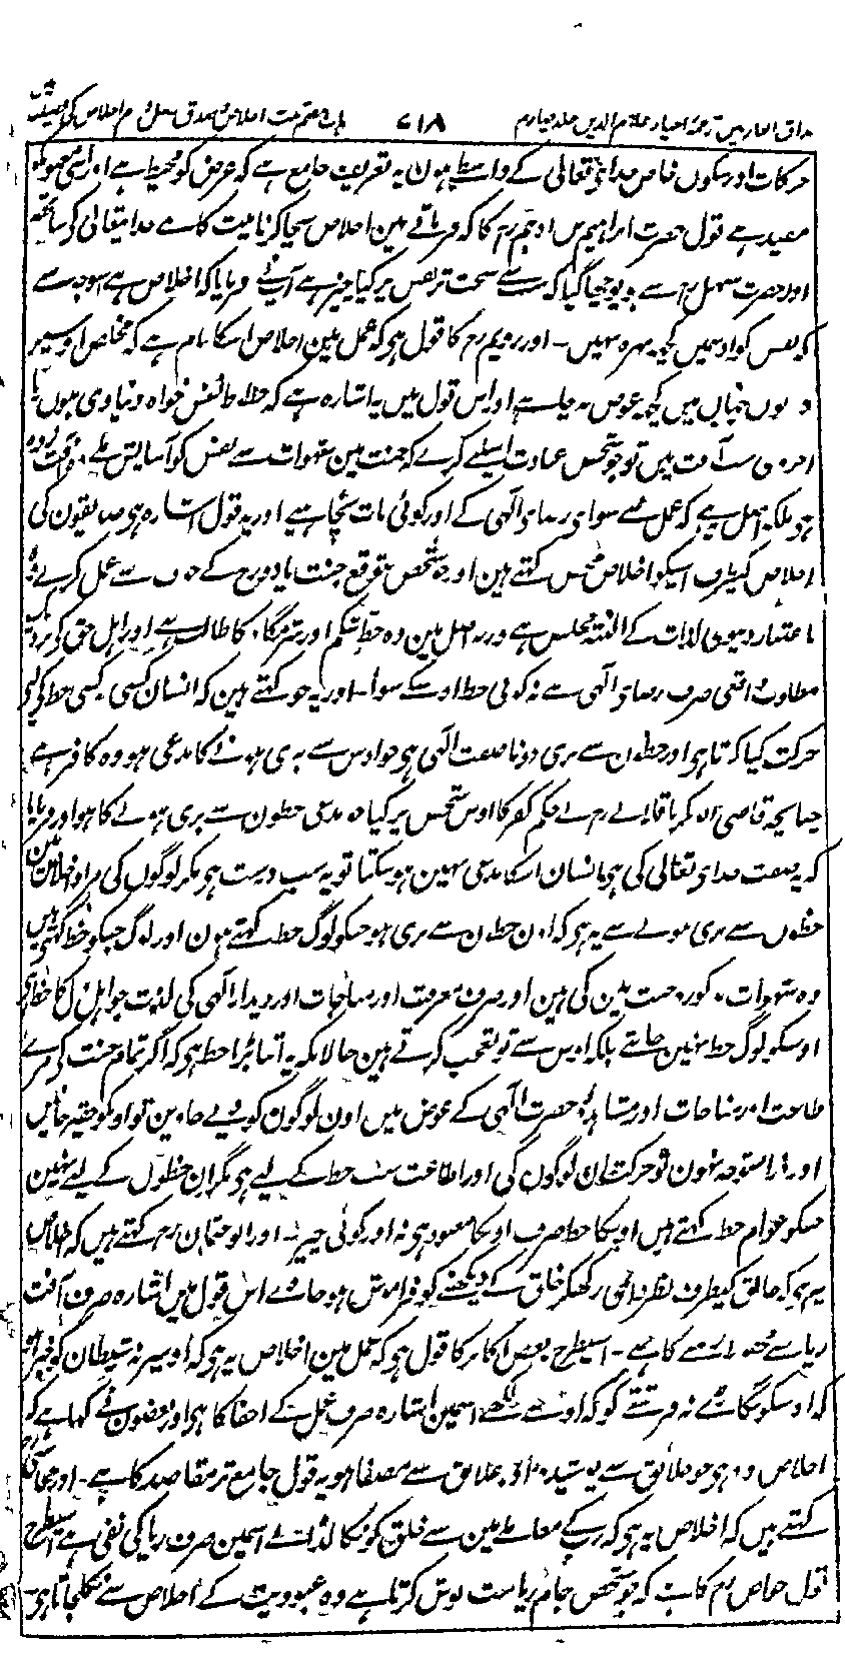 مذاق العارفین ترجمۂ احیاء علوم الدین جلد چہارم ۷۱۸ باب ہفتم نیت اخلاص و صدق فصل دوم اخلاص کی فضیلت
حرکات اور سکون خاص خدای تعالیٰ کے واسطے ہون یہ تعریف جامع ہے کہ غرض کو محیط ہے اور اسی مضمون کو
مفید ہے قول حضرت ابراہیم بن ادہم رح کا کہ فرماتے ہین اخلاص سچا کرنا نیت کا ہے خدا یتعالیٰ کے ساتھ
اور حضرت سہل رح سے پوچھا گیا کہ سب سے سخت تر نفس پر کیا چیز ہے آپ نے فرمایا کہ اخلاص ہے اسوجہ سے
کہ نفس کو اوسمیں کچھ بہرہ نہیں۔ اور رویم رح کا قول ہو کہ عمل مین اخلاص اسکا نام ہے کہ مخلص اوسپر
دونوں جہان میں کچھ عوض نہ چاہے اور اس قول میں یہ اشارہ ہے کہ حظ حظ نفس خواہ دنیاوی ہوں یا
اخروی سب آفت ہیں تو جو شخص عبادت اسلیے کرے کہ جنت مین شہوات سے نفس کو آسایش ملے وہ آفت زدہ
ہو بلکہ اصل یہ ہے کہ عمل سے سوای رضای الٰہی کے اور کوئی بات نچاہے اور یہ قول اشارہ ہو صدیقون کی
اخلاص کیطرف اسیکو اخلاص محض کہتے ہین اور جو شخص بتوقع جنت یا دوزخ کے خوف سے عمل کرے وہ
باعتبار دنیوی لذات کے البتہ مخلص ہے ورنہ اصل مین وہ حظ شکم اور شرمگاہ کا طالب ہے اور اہل حق کے نزدیک
مطلوب واقعی صرف رضای الٰہی ہے نہ کوئی حظ اوسکے سوا۔ اور یہ جو کہتے ہین کہ انسان کسی نہ کسی حظ کے لیے
حرکت کیا کرتا ہو اور حظون سے بری ہونا صفت الٰہی ہو جو اوس سے بری ہونے کا مدعی ہو وہ کافر ہے
چنانچہ قاضی ابو بکر باقلانی رح نے حکم کفر کا اوس شخص پر کیا جو مدعی حظون سے بری ہونے کا ہو اور فرمایا
کہ یہ صفت خدای تعالیٰ کی ہو انسان اسکا مدعی نہین ہو سکتا تو یہ سب درست ہو مگر لوگوں کی مراد اخلاص مین
حظوں سے بری ہونے سے یہ ہو کہ اون حظون سے بری ہو جسکو لوگ حظ کہتے ہون اور لوگ جسکو حظ کہتے ہیں
وہ شہوات مذکورہ جنت ہین کی ہین اور صرف معرفت اور مناجات اور دیدار الٰہی کی لذت جو اہل دل کا حظ ہو
اوسکو لوگ حظ نہین جانتے بلکہ اوس سے تو تعجب کرتے ہین حالانکہ یہ اتنا بڑا حظ ہو کہ اگر تمام جنت کے مزے
طاعت اور مناجات اور مشاہدۂ حضرت الٰہی کے عوض میں اون لوگون کو دیے جاوین تو اوسکو حقیر جانیں
اور ذرا متوجہ نہون تو حرکت ان لوگوں کی اور اطاعت سب حظ کے لیے ہو مگر ان حظوں کے لیے نہین
جسکو عوام حظ کہتے ہیں اوسکا حظ صرف اوسکا معبود ہو نہ اور کوئی چیز۔ اور ابو عثمان رح کہتے ہیں کہ اخلاص
یہ ہو کہ خالق کیطرف نظر دائمی رکھکر خلق کے دیکھنے کو فراموش ہو جاوے اس قول میں اشارہ صرف آفت
ریا سے محفوظ رہنے کا ہے۔ اسیطرح بعض اکابر کا قول ہو کہ عمل مین اخلاص یہ ہو کہ اوسپر نہ شیطان کو خبر ہو
کہ اوسکو بگاڑے نہ فرشتے کو کہ اوسے لکھے اسمین اشارہ صرف عمل کے اخفا کا ہو اور بعضون نے کہا ہے کہ
اخلاص وہ ہو جو خلائق سے پوشیدہ اور علائق سے مصفا ہو یہ قول جامع تر مقاصد کا ہے۔ اور محاسبی رح
کہتے ہیں کہ اخلاص یہ ہو کہ رب کے معاملے مین سے خلق کو نکالڈالے اسمین صرف ریا کی نفی ہے اسیطرح
قول خواص رح کا ہے کہ جو شخص جام ریاست نوش کرتا ہے وہ عبودیت کے اخلاص سے نکلجاتا ہو۔